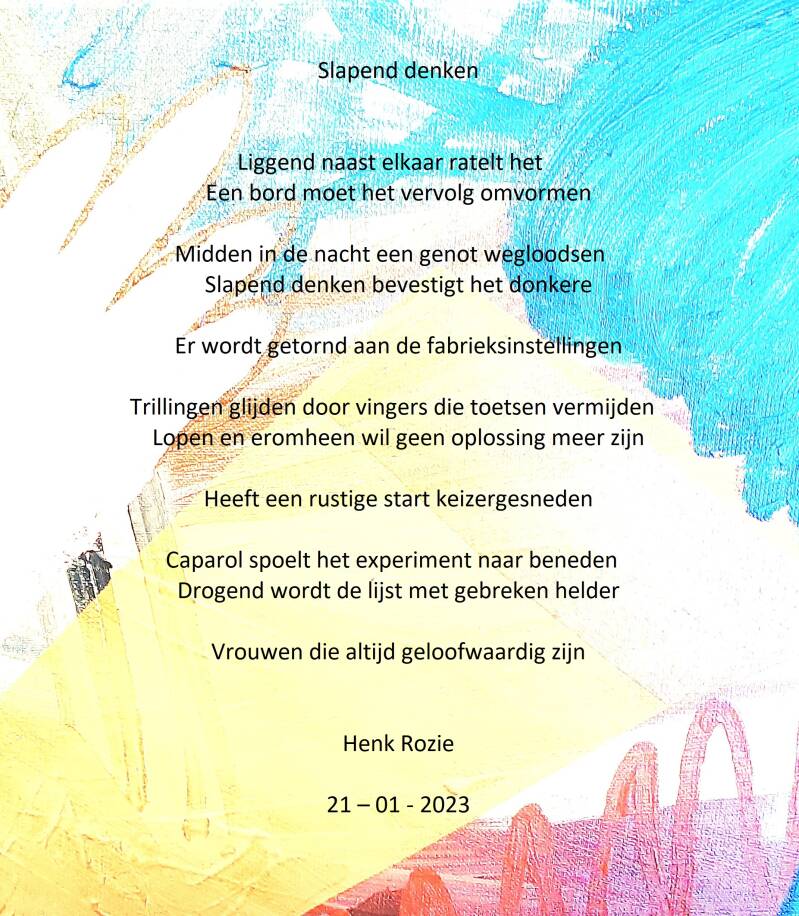 Slapend denken
Liggend naast elkaar ratelt het
Een bord moet het vervolg omvormen
Midden in de nacht een genot wegloodsen
Slapend denken bevestigt het donkere
Er wordt getornd aan de fabrieksinstellingen
Trillingen glijden door vingers die toetsen vermijden
Lopen en eromheen wil geen oplossing meer zijn
Heeft een rustige start keizergesneden
Caparol spoelt het experiment naar beneden
Drogend wordt de lijst met gebreken helder
Vrouwen die altijd geloofwaardig zijn
Henk Rozie
21 – 01 - 2023